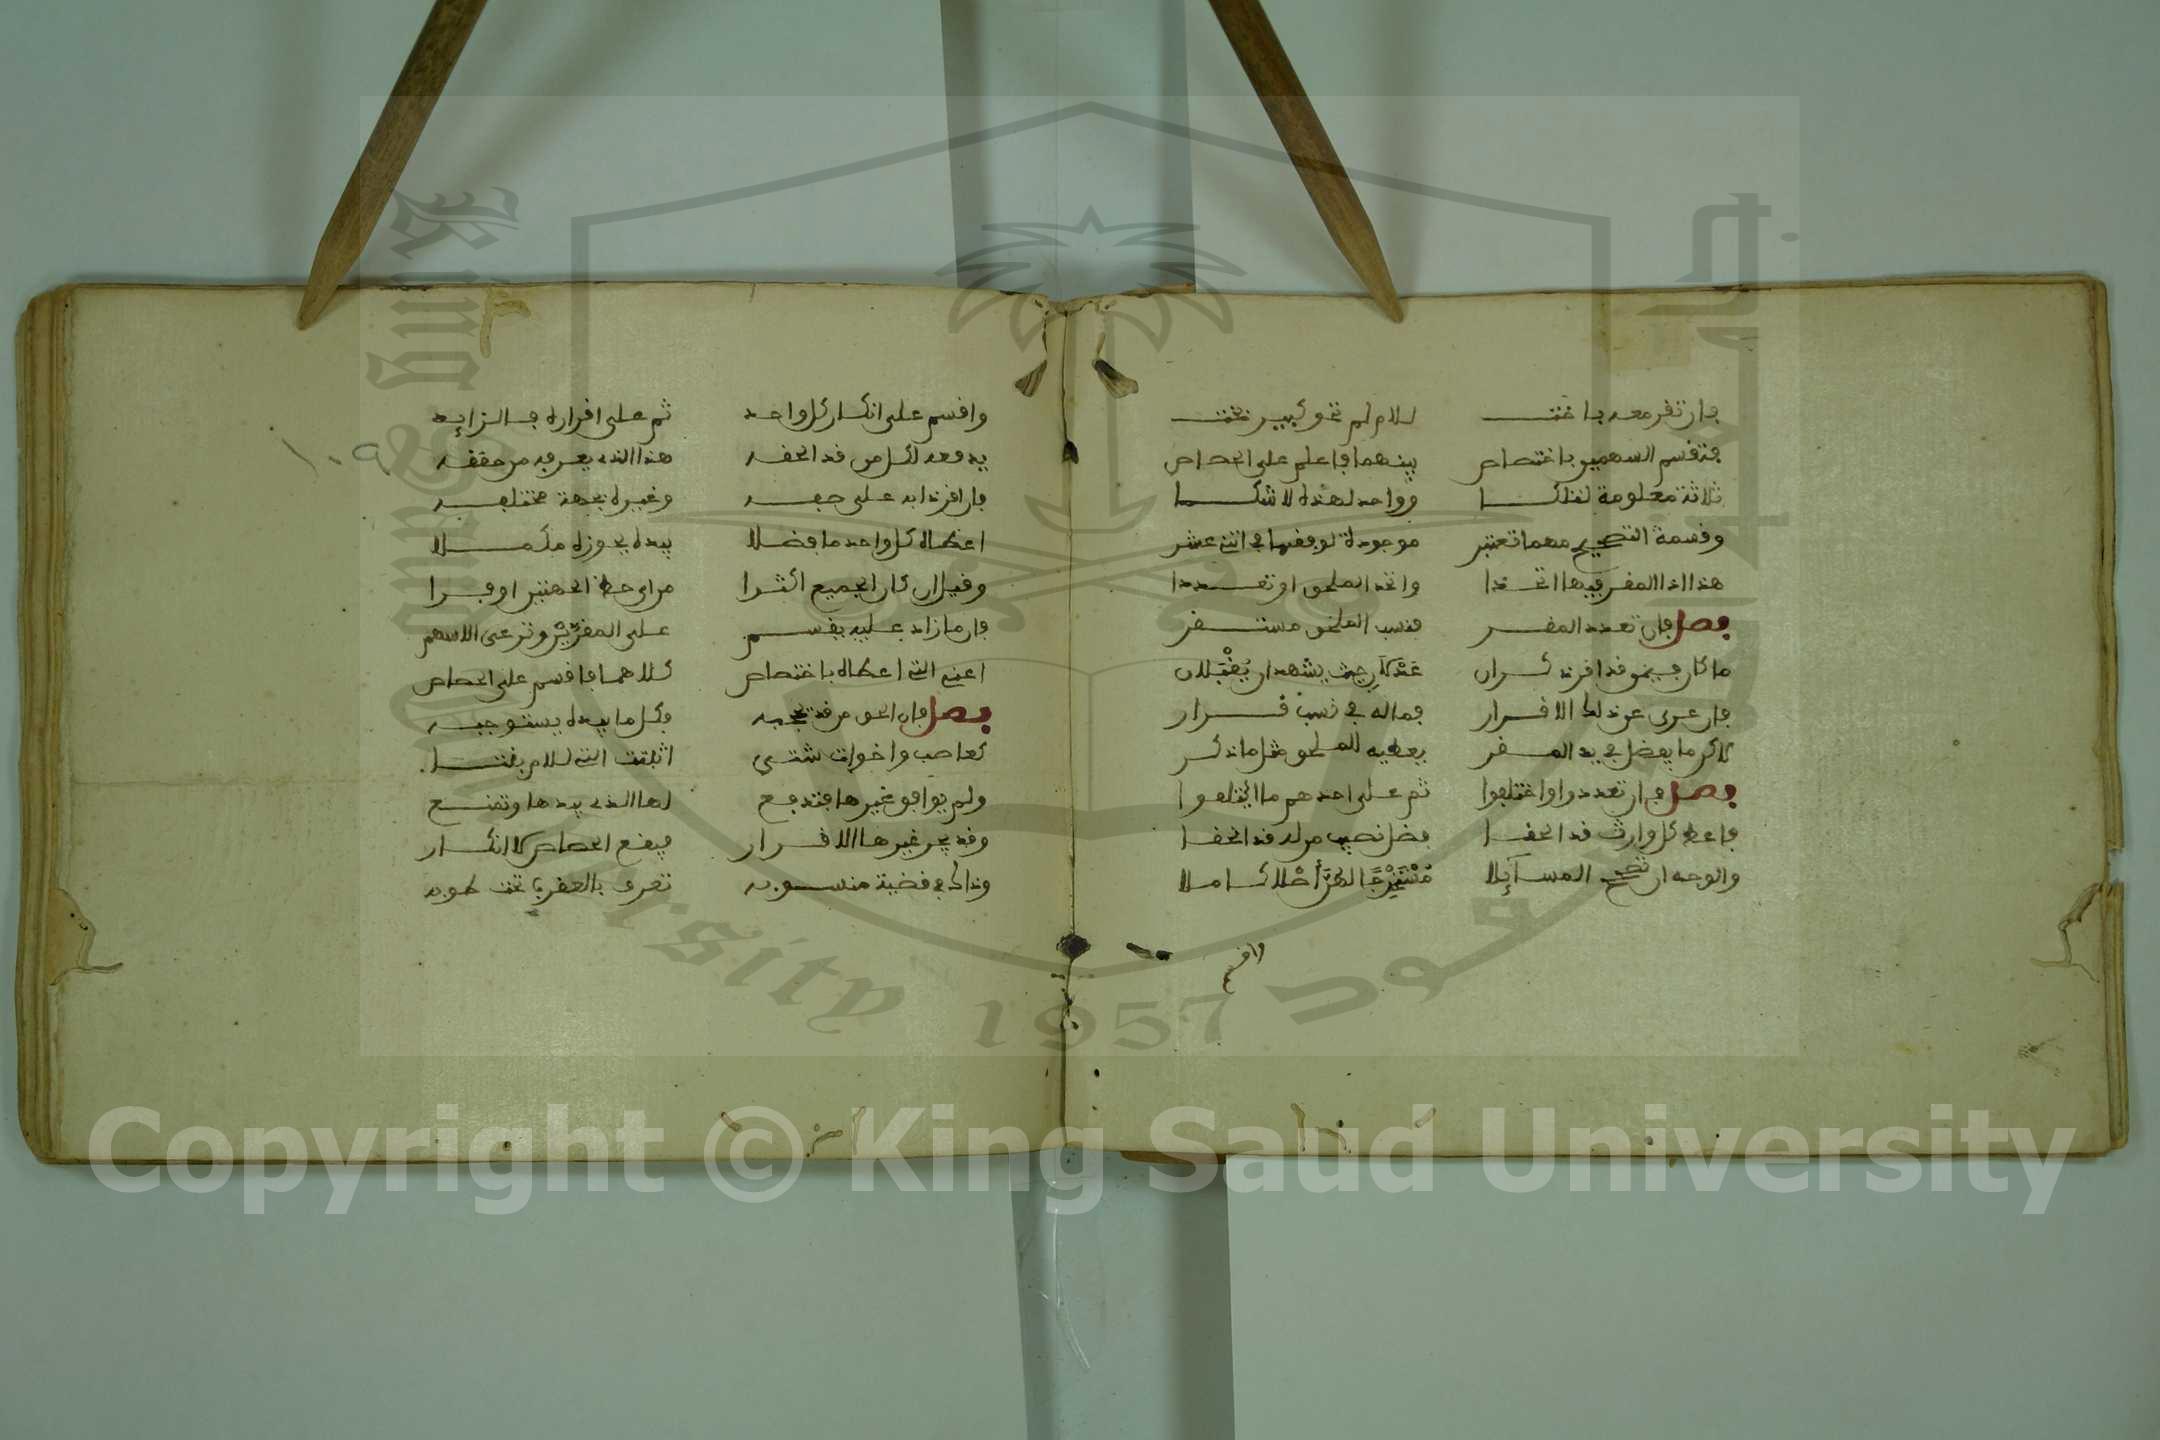 فان تقر معه باخت للام لم تحو كبير تخت
فتقسم السهمين باختصاص بينهما فاعلم على الحصاص
ثلاثة معلومة لذلكا وواحد لهذه لا شكا
وقسمة التصحيح مهما تعتبر موجودة لوفقها في اثني عشر
هذا اذا المقر فيها اتحدا واتحد الملحق او تعددا
فصل فان تعدد المقر فنسب الملحق مستقر
ما كان فيمن قد اقر ذكران عدلان حيث يشهدان يقبلان
فان عرى عن ذلك الاقرار فماله في نسب قرار
لاكن ما يفضل في يد المقر يعطيه للملحق مثل ما ذكر
فصل فان تعددوا واختلفوا ثم على احدهم ما ايتلفوا
فاعط كل وارث قد الحقا فضل نصيب من له قد الحقا
والوجه ان تصحح المسآيلا مستخرجا لكل أصلا كاملا
واقسم
واقسم على انكار كل واحد ثم على اقراره بالزايد
يدفعه لكل من قد الحقه هذا الذي يعرفه من حققه
فان اقر ذا به على جهه وغيره بجهة مختلفه
اعطاه كل واحد ما فضلا بيده يحوزه مكملا
وقيل ان كان الجميع اكثرا من اى حظ الجهتين اوفرا
فان ما زاد عليه يقسم على المقرين وترعى الاسهم
اعني التي اعطاه باختصاص كلاهما فاقسم على الحصاص
فصل فان الحق من قد تحجبه فكل ما بيده يستوجبه
كعاصب واخوات شتى اثبتت التي للام بنتا
ولم يوافق غيرها فتدفع لها الذي بيدها وتمنع
وقد يجر غيرها الاقرار فيقع الحصاص لا انكار
وذاك في قضية منسوبه تعرف بالعقرب تحت طوبه
١٠٩
King Saud University
1957
Copyright © King Saud University